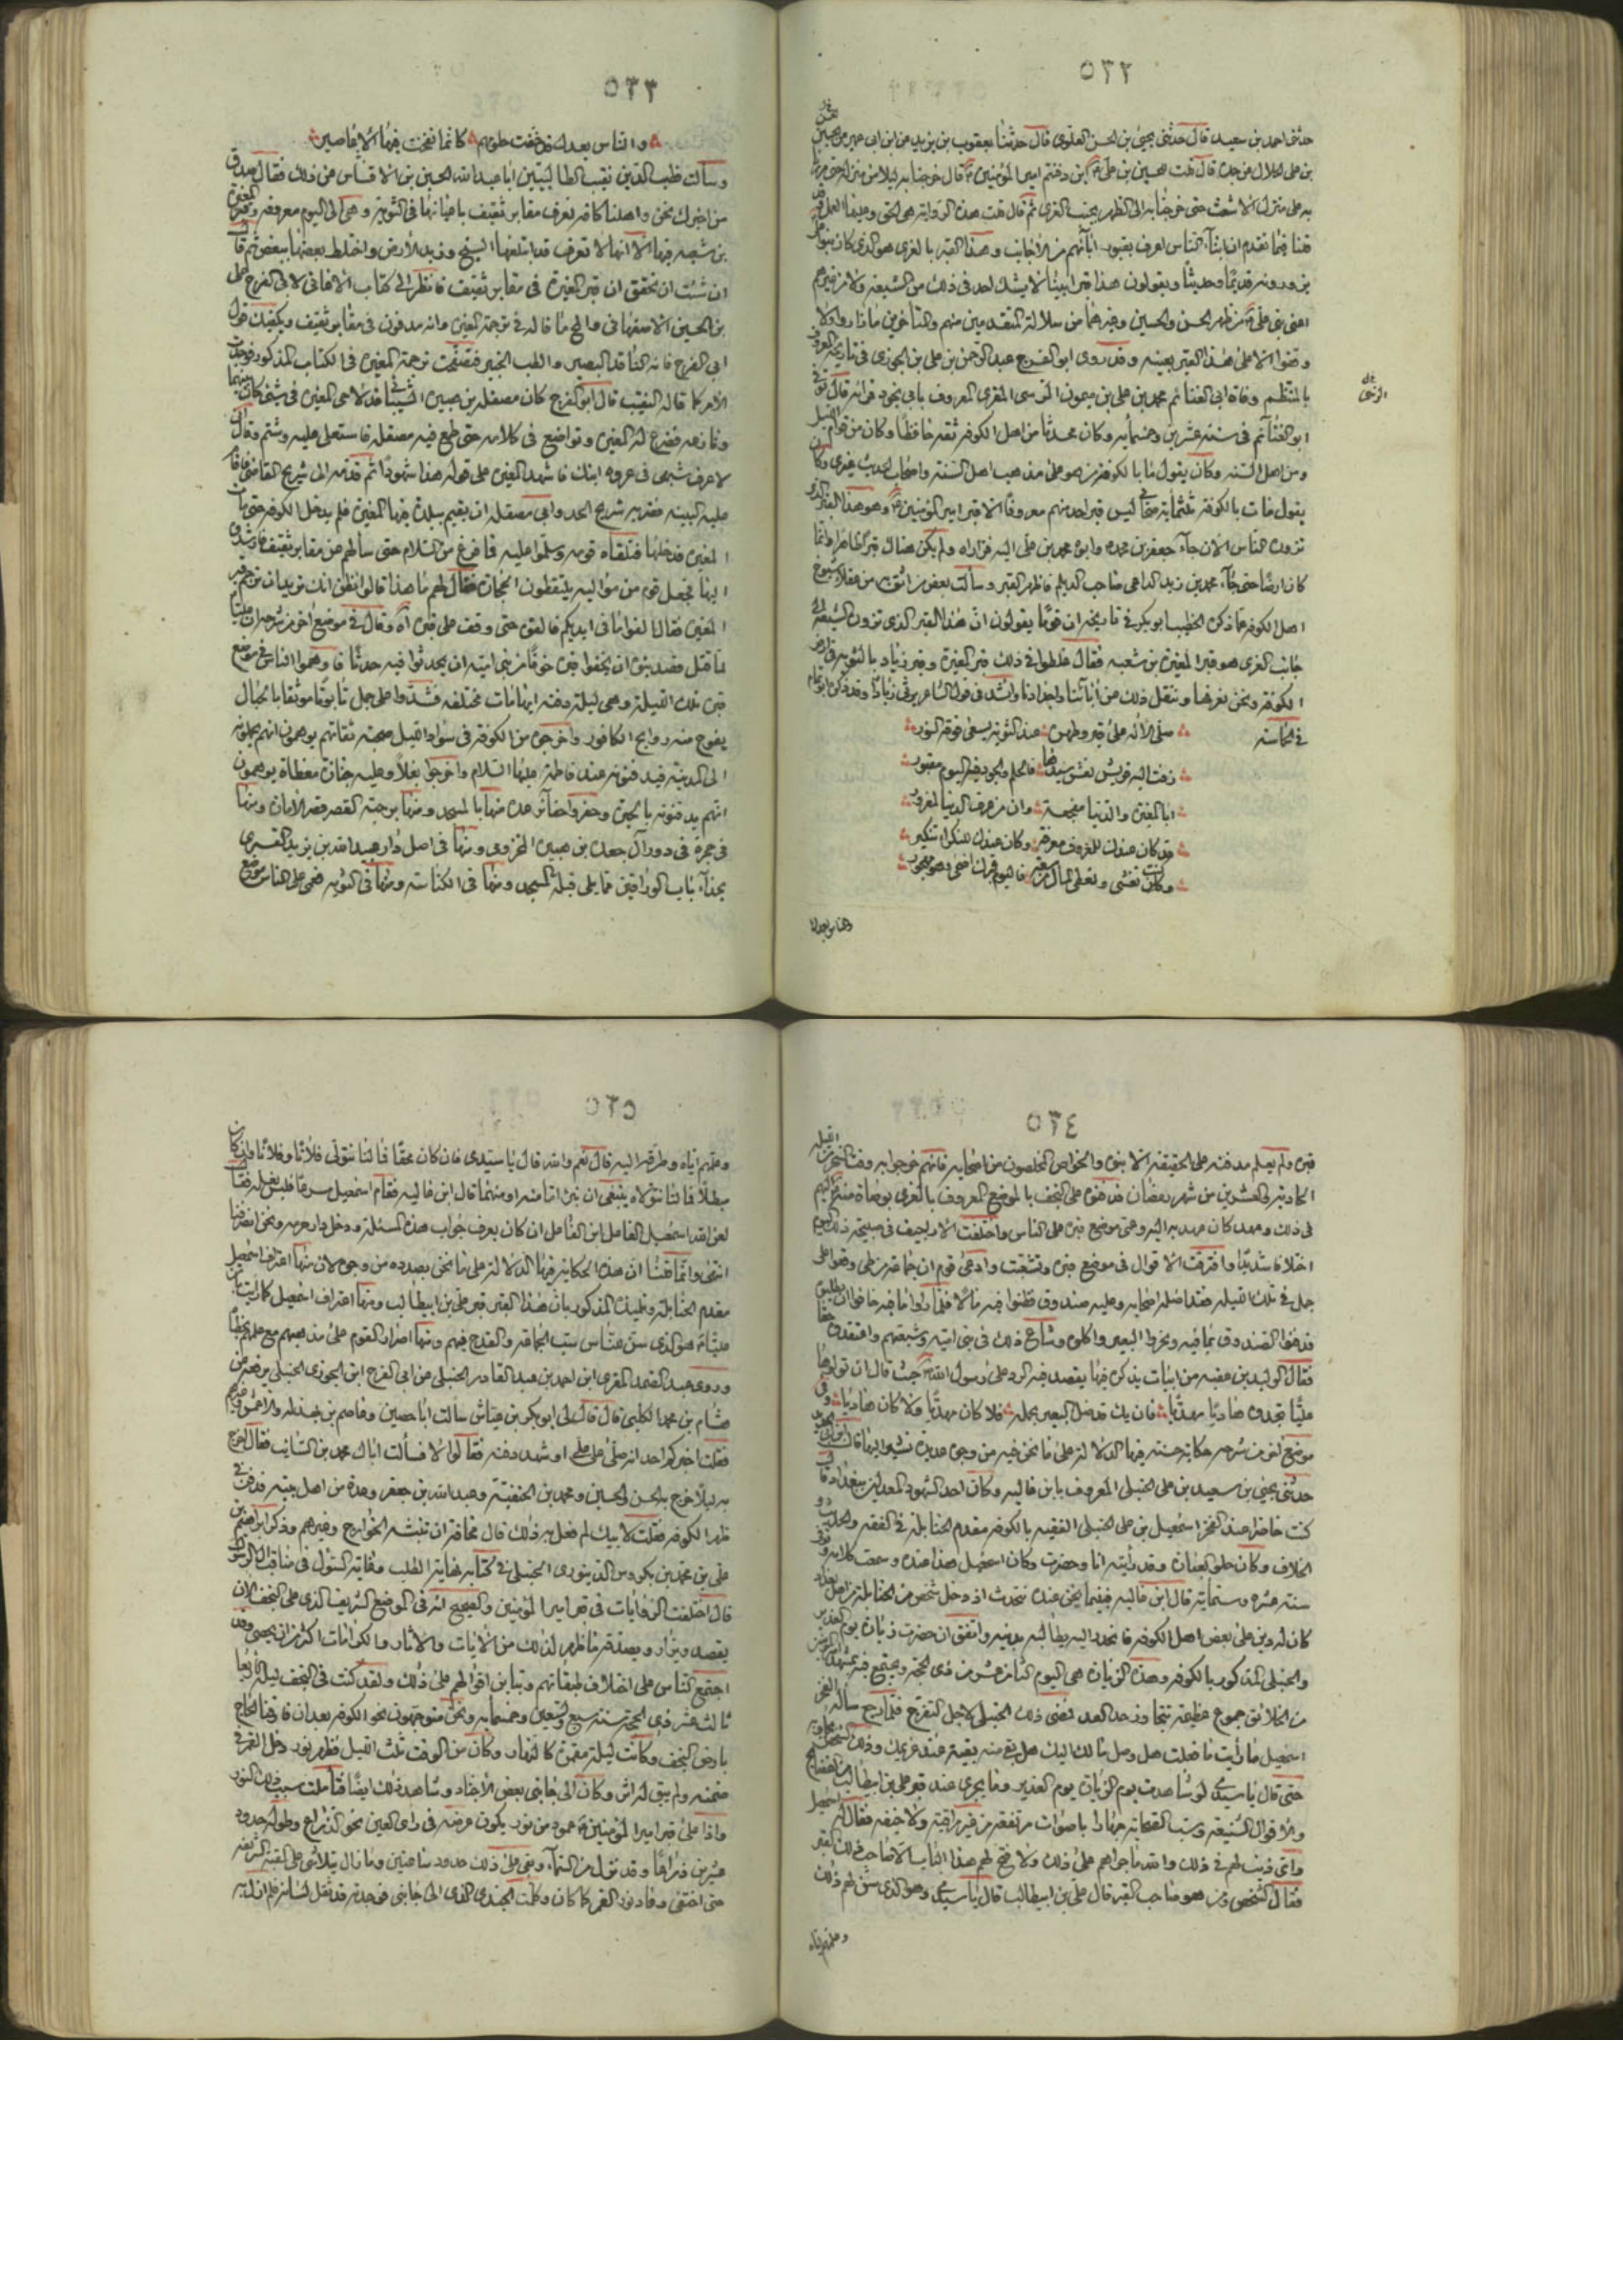 ٥٣٢
حدثنى احمد بن سعيد قال حدثنى يحيى بن الحسن العلوى قال حدثنا يعقوب بن يزيد عن ابن ابى عمير عن الحسين
بن على الخلال عن جده قال قلت للحسين بن على اين دفنتم امير المؤمنين قال خرجنا به ليلا من منزله حتى مررنا
به على منزل الاشعث حتى خرجنا به الى الظهر بجنب الغرى ثم قال قلت هذه الرواية هى الحق وعليها العمل وقد
قلنا فيما تقدم ان ابناء الناس اعرف بقبور آبائهم من الأجانب وهذا القبر بالغرى هو الذى كان بنو على
يزورونه قديما وحديثا ويقولون هذا قبر ابينا لا يشك احد فى ذلك من الشيعة ولا من غيرهم
اعنى بنى على من ظهر الحسن والحسين وغيرهما من سلالته المتقدمين منهم والمتأخرين ما زاروا ولا
وقفوا الا على هذا القبر بعينه وقد روى ابو الفرج عبد الرحمن بن على بن الجوزى فى تاريخه المعروف
بالمنتظم وفاة ابى الغنائم محمد بن على بن ميمون النرسى المقرى المعروف بابى لجودة قراءته قال توفى
ابو الغنائم فى سنة عشر وخمسمائة وكان محدثا من اهل الكوفة ثقة حافظا وكان من قوام الليل
ومن اهل السنة وكان يقول ما بالكوفة من هو على مذهب اهل السنة واصحاب الحديث غيرى وكان
يقول مات بالكوفة ثلثمائة صحابى ليس قبر احد منهم معروفا الا قبر امير المؤمنين وهو هذا القبر الذى
تزوره الناس الان جاء جعفر بن محمد وابوه محمد بن على اليه فزاراه ولم يكن هناك قبر ظاهر وانما
كان ارضا حتى جاء محمد بن زيد الداعى صاحب الديلم فاظهر القبر وسألت بعض من اثق به من عقلاء شيوخ
اهل الكوفة عما ذكره الخطيب ابو بكر فى تاريخه ان قوما يقولون ان هذا القبر الذى تزوره الشيعة الى
جانب الغرى هو قبر المغيرة بن شعبه فقال غلطوا فى ذلك قبر المغيرة وقبر زياد بالثوية من ارض
الكوفة ونحن نعرفها وننقل ذلك عن آبائنا واجدادنا وانشد فى قول الشاعر يرثى زيادا وقد ذكره ابو تمام
فى الحماسة
صلى الاله على قبر وطهره عند الثوية يسفى فوقه المور
زفت اليه قريش نعش سيدها فالحلم والجود فيه اليوم مقبور
ابا المغيرة والدنيا مفجعة وان من غرت الدنيا لمغرور
قد كان عندك للمعروف معرفة وكان عندك للنكراء تنكير
وكنت تغشى وتعطى المال من سعة فاليوم قبرك اضحى وهو مهجور
والناس بعدك
٥٣٣
والناس بعدك قد خفت حلومهم كانما نفخت فيها الاعاصير
وسألت قطب الدين نقيب الطالبيين ابا عبد الله الحسين بن الاقساسى عن ذلك فقال صدق
من اخبرك نحن واهلنا كافة نعرف مقابر ثقيف باعيانها فى الثوية وهى الى اليوم معروفة وقبر المغيرة
بن شعبه فيها الا انها لا تعرف قد ابتلعها السبخ وزبد الأرض واختلط بعضها ببعض ثم قال
ان شئت ان تحقق ان قبر المغيرة فى مقابر ثقيف فانظر الى كتاب الاغانى لابى الفرج على
بن الحسين الاصفهانى والمح ما قاله فى ترجمة المغيرة وانه مدفون فى مقابر ثقيف ويكفيك قول
ابى الفرج فانه الناقد البصير والطب الخبير فتصفحت ترجمة المغيرة فى الكتاب المذكور فوجدت
الامر كما قاله النقيب قال ابو الفرج كان مصقلة بن هبيرة الشيبانى قد لاحى المغيرة فى شئ كان بينهما
ونازعه فضرع له المغيرة وتواضع فى كلامه حتى طمع فيه مصقلة فاستعلى عليه وشتمه وقال انى
لاعرف شبهى فى عروة ابنك فاشهد المغيرة على قوله هذا شهودا ثم قدمه الى شريح القاضى فاقام
عليه البينة فضربه شريح الحد وآلى مصقلة ان لا يقيم ببلدة فيها المغيرة فلم يدخل الكوفة حتى مات
المغيرة فدخلها فتلقاه قومه وسلموا عليه فما فرغ من السلام حتى سألهم عن مقابر ثقيف فارشدوه
اليها فجعل قوم من مواليه يلتقطون الحجارة فقال لهم ما هذا قالوا نظن انك تريد ان ترجم قبر
المغيرة فقال القوا ما فى ايديكم فالقوه حتى وقف على قبره آه وقال فى موضع آخر من شرحه ان عليا
لما قتل قصد بنوه ان يخفوا قبره خوفا من بنى امية ان يحدثوا فيه حدثا فاوهموا الناس فى موضع
قبره تلك الليلة وهى ليلة دفنه ايهامات مختلفه فشدوا على جمل تابوتا موثقا بالحبال
يفوح منه روايح الكافور واخرجوه من الكوفة فى سواد الليل صحبة ثقاتهم يوهمون انهم يحملونه
الى المدينة فيدفنونه عند فاطمة عليها السلام واخرجوا بغلا وعليه جنازة مغطاة يوهمون
انهم يدفنونه بالحيرة وحفروا حفائر عدة منها بالمسجد ومنها برحبة القصر قصر الأمارة ومنها
فى حجرة فى دور آل جعدة بن هبيرة المخزومى ومنها فى اصل دار عبد الله بن يزيد القسرى
بحذاء باب الوراقين مما يلى قبلة المسجد ومنها فى الكناسة ومنها فى الثوية فعمى على الناس موضع
٥٣٤
قبره ولم يعلم مدفنه على الحقيقة الا بنوه والخواص المخلصون من اصحابه فانهم خرجوا به وقت السحر من الليلة
الحادية والعشرين من شهر رمضان فدفنوه على النجف بالموضع المعروف بالغرى بوصاة منه اليهم
فى ذلك وعهد كان عهد به اليه وعمى موضع قبره على الناس واختلفت الاراجيف فى صبيحة ذلك اليوم
اختلافا شديدا وافترقت الاقوال فى موضع قبره وتشعبت وادعى قوم ان جماعة من طى وقعوا على
جمل فى تلك الليلة وقد اضله اصحابه وعليه صندوق فظنوا فيه مالا فلما رأوا ما فيه خافوا ان يطلبوا به
فدفنوا الصندوق بما فيه ونحروا البعير واكلوه وشاع ذلك فى بنى امية وشيعتهم واعتقدوه حقا
فقال الوليد بن عقبه من ابيات يذكره فيها يقصد فيه الرد على رسول الله حيث قال ان تولوها
عليا تجدوه هاديا مهديا فان يك قد ضل البعير بحمله فلا كان مهديا ولا كان هاديا وفى
موضع آخر من شرحه حكاية حسنة فيها الدلالة على ما نحن فيه من وجوه عديدة نشير اليها قال ابن ابى الحديد
حدثنى يحيى بن سعيد بن على الحنبلى المعروف بابن عاليه وكان احد الشهود المعدلين ببغداد قال
كنت حاضرا عند الفخر اسمعيل بن على الحنبلى الفقيه بالكوفه مقدم الحنابلة فى الفقه والحديث و
الخلاف وكان حلو العبارة وقد رأيته انا وحضرت وكان اسمعيل هذا عنده وسمعت كلامه وتوفى
سنة عشره وستمائة قال ابن عاليه فبينما نحن عنده نتحدث اذ دخل شخص من الحنابلة من اهل بغداد
كان له دين على بعض اهل الكوفه فانحدر اليه يطالبه بدينه واتفق ان حضرت زيارة يوم الغدير
والحنبلى المذكور بالكوفه وهذه الزيارة هى اليوم الثامن عشر من ذى الحجة ويجتمع فيه بمشهد امير المؤمنين
من الخلائق جموع عظيمة تتجاوز حد العد فمضى ذلك الحنبلى لاجل التفرج فلما رجع سأله الفخر
اسمعيل ما رأيت ما فعلت هل وصل مالك اليك هل بقى منه بقية عند غريمك وذلك الشخص يجاوبه
حتى قال يا سيدى لو شاهدت يوم الزيارة يوم الغدير وما يجرى عند قبر على بن ابيطالب من الفضايح
والاقوال الشنيعة وسب الصحابة جهارا باصوات مرتفعة من غير مراقبة ولا خيفة فقال له اسمعيل
واى ذنب لهم فى ذلك والله ما جراهم على ذلك ولا فتح لهم هذا الباب الا صاحب ذلك القبر
فقال الشخص ومن هو صاحب القبر قال على بن ابيطالب قال يا سيدى وهو الذى سن لهم ذلك
وعلمهم اياه
٥٣٥
وعلمهم اياه وطرقهم اليه قال نعم والله قال يا سيدى فان كان محقا فما لنا نتولى فلانا وفلانا وان كان
مبطلا فما لنا نتولاه ينبغى ان نبرئ اما منه او منهما قال ابن عاليه فقام اسمعيل مسرعا فلبس نعليه فقال
لعن الله اسمعيل الفاعل ابن الفاعل ان كان يعرف جواب هذه المسئلة ودخل دار حرمه ونحن انصرفنا
انتهى وانما قلنا ان هذه الحكاية فيها الدلالة على ما نحن بصدده من وجوه لان منها اعتراف اسمعيل
مقدم الحنابلة وتلميذه المذكور بان هذا القبر قبر على بن ابيطالب ومنها اعتراف اسمعيل كما رأيت بان
عليا هو الذى سن للناس سب الجماعة والقدح فيهم ومنها اصرار القوم على مذهبهم مع علمهم بخطأ
وروى عبد الصمد المقرى ابن احمد بن عبد القادر الحنبلى عن ابى الفرج ابن الجوزى الحنبلى يرفعه عن
هشام بن محمد الكلبى قال قال لى ابو بكر بن عياش سألت ابا حصين وعاصم بن بهدلة والاعمش وغيرهم
فقلت اخبركم احد انه صلى على على او شهد دفنه فقالوا لا فسألت اباك محمد بن السائب فقال اخرج
به ليلا خرج به الحسن والحسين ومحمد بن الحنفية وعبد الله بن جعفر وعدة من اهل بيته فدفن فى
ظهر الكوفه فقلت لابيك لم فعل به ذلك قال مخافة ان تنبشه الخوارج وغيرهم وذكر ابراهيم بن
على بن محمد بن بكروس الدينورى الحنبلى فى كتابه نهاية الطلب وغاية السئول فى مناقب آل الرسول
قال اختلفت الروايات فى قبر امير المؤمنين والصحيح انه فى الموضع الشريف الذى على النجف الان
يقصد ويزار ويصدقه ما ظهر لذلك من الآيات والآثار والكرامات اكثر من ان يحصى وقد
اجتمع الناس على اختلاف طبقاتهم وتباين اقوالهم على ذلك ولقد كنت فى النجف ليلة الاربعا
ثالث عشر ذى الحجة سنة سبع وتسعين وخمسمائة ونحن متوجهون نحو الكوفه بعد ان فارقنا الحاج
بارض النجف وكانت ليلة مقمرة كالنهار وكان من الوقت ثلث الليل فظهر نور دخل القمر فى
ضمنه ولم يبق له اثر وكان الى جانبى بعض الأجناد وشاهد ذلك ايضا فتأملت سبب ذلك النور
واذا على قبر امير المؤمنين عمود من نور يكون عرضه فى راى العين نحو الذراع وطوله حدود
عشرين ذراعا وقد نزل من السماء وبقى على ذلك حدود ساعتين وما زال يتلاشى على القبة الشريفة
حتى اختفى وعاد نور القمر كما كان وكلمت الجندى الذى الى جانبى فوجدته قد ثقل لسانه فلم ازل به